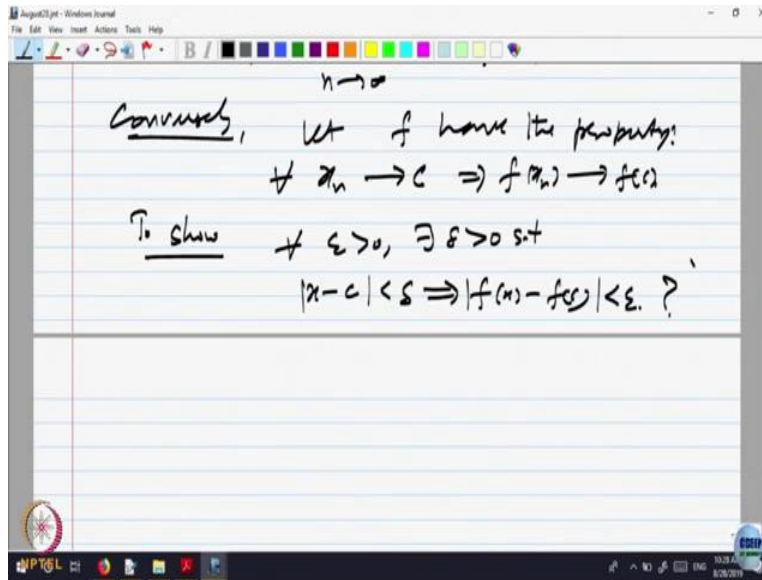 August28.jnt - Windows Journal
File Edit View Insert Actions Tools Help
B I
n→∞
Conversely, let f have the property:
∀ xn → c ⇒ f(xn) → f(c)
To show ∀ ε>0, ∃ δ>0 s.t
|x-c|<δ ⇒ |f(x)-f(c)|<ε. ?
NPTEL
ENG
8/28/2019